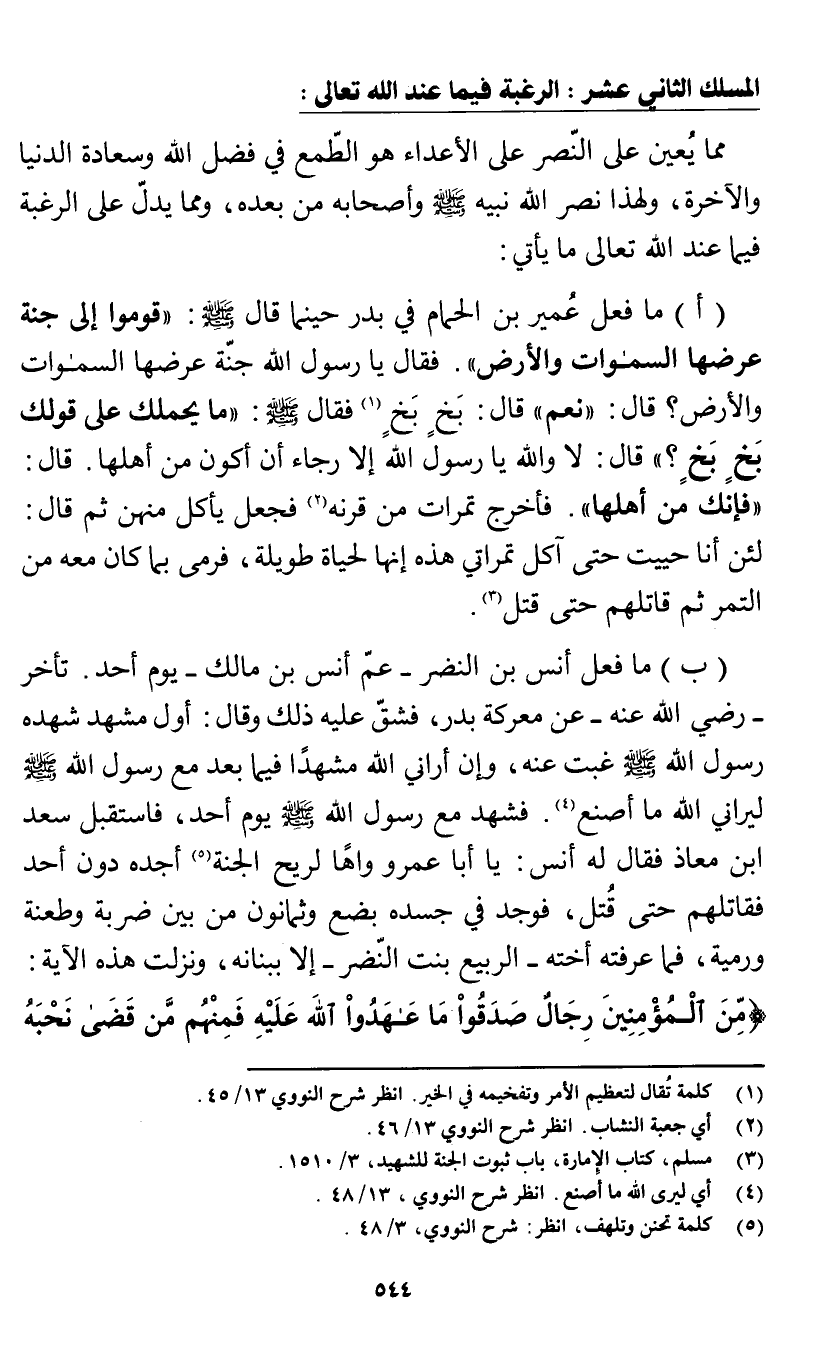 المسلك الثاني عشر : الرغبة فيما عند الله تعالى :
مما يُعين على النّصر على الأعداء هو الطّمع في فضل الله وسعادة الدنيا
والآخرة، ولهذا نصر الله نبيه ﷺ وأصحابه من بعده، ومما يدلّ على الرغبة
فيما عند الله تعالى ما يأتي:
( أ ) ما فعل عُمير بن الحمام في بدر حينما قال ﷺ: «قوموا إلى جنة
عرضها السمـٰوات والأرض». فقال يا رسول الله جنّة عرضها السمـٰوات
والأرض؟ قال: «نعم» قال: بَخٍ بَخٍ(١) فقال ﷺ: «ما يحملك على قولك
بَخٍ بَخٍ؟» قال: لا والله يا رسول الله إلا رجاء أن أكون من أهلها. قال:
«فإنك من أهلها». فأخرج تمرات من قرنه(٢) فجعل يأكل منهن ثم قال:
لئن أنا حييت حتى آكل تمراتي هذه إنها لحياة طويلة، فرمى بما كان معه من
التمر ثم قاتلهم حتى قتل(٣).
( ب ) ما فعل أنس بن النضر ـ عمّ أنس بن مالك ـ يوم أحد. تأخر
ـ رضي الله عنه ـ عن معركة بدر، فشقّ عليه ذلك وقال: أول مشهد شهده
رسول الله ﷺ غبت عنه، وإن أراني الله مشهدًا فيما بعد مع رسول الله ﷺ
ليراني الله ما أصنع(٤). فشهد مع رسول الله ﷺ يوم أحد، فاستقبل سعد
ابن معاذ فقال له أنس: يا أبا عمرو واهًا لريح الجنة(٥) أجده دون أحد
فقاتلهم حتى قُتل، فوجد في جسده بضع وثمانون من بين ضربة وطعنة
ورمية، فما عرفته أخته ـ الربيع بنت النّضر ـ إلا ببنانه، ونزلت هذه الآية:
﴿مِّنَ ٱلْمُؤْمِنِينَ رِجَالٌ صَدَقُواْ مَا عَـٰهَدُواْ ٱللهَ عَلَيْهِ فَمِنْهُم مَّن قَضَىٰ نَحْبَهُ
(١) كلمة تُقال لتعظيم الأمر وتفخيمه في الخير. انظر شرح النووي ١٣/ ٤٥.
(٢) أي جعبة النشاب. انظر شرح النووي ١٣/ ٤٦.
(٣) مسلم، كتاب الإمارة، باب ثبوت الجنة للشهيد، ٣/ ١٥١٠.
(٤) أي ليرى الله ما أصنع. انظر شرح النووي ، ١٣/ ٤٨ .
(٥) كلمة تحنن وتلهف، انظر: شرح النووي، ٣/ ٤٨ .
٥٤٤